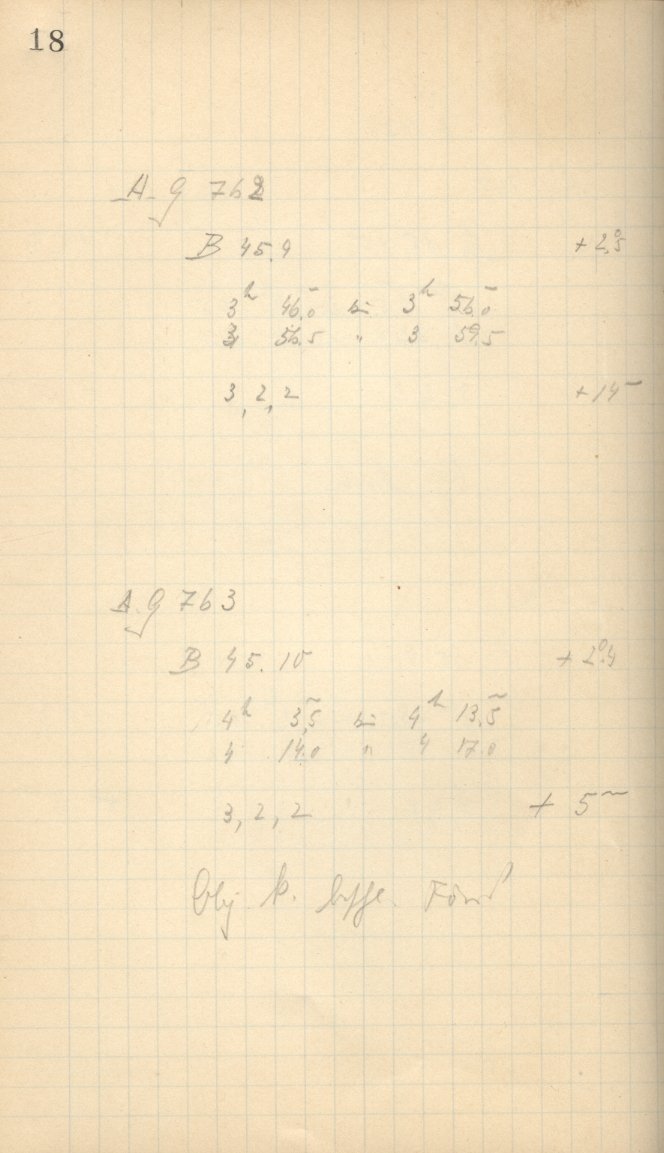 18
A. G 762
B 45.9 +2°,5
3h 46m.0 bis 3h 56m.0
3 56.5 " 3 59.5
3, 2, 2 +14m
A. G 763
B 45.10 +2°.4
4h 3m.5 bis 4h 13m.5
4 14.0 " 4 17.0
3, 2, 2 + 5m
Obj. k.